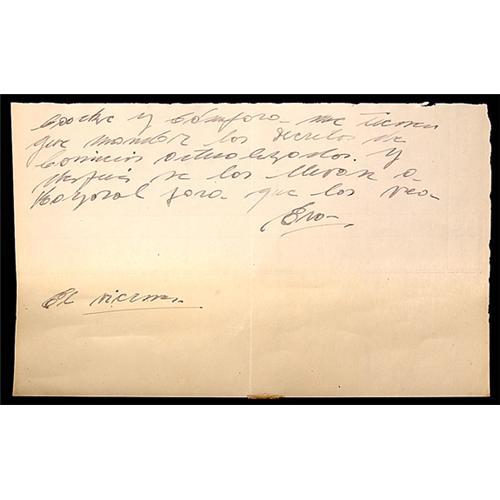 y me tienen
que mandar los decretos de
Comicios actualizados. y
después se los llevan a
Mayoral para que los vea
Eva
El viernes